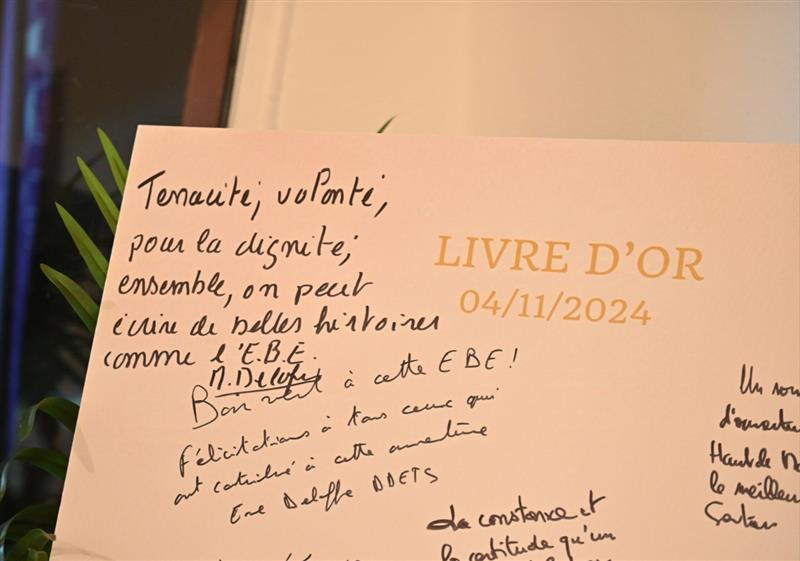 Tenacité, volonté,
pour la dignité;
ensemble, on peut
écrire de belles histoires
comme l'E.B.E.
LIVRE D'OR
04/11/2024
Bon vent à cette EBE!
Félicitations à tous ceux qui
ont contribué à cette aventure
DDETS
La constance et
la certitude qu'un
Un
Haut de
le meilleur